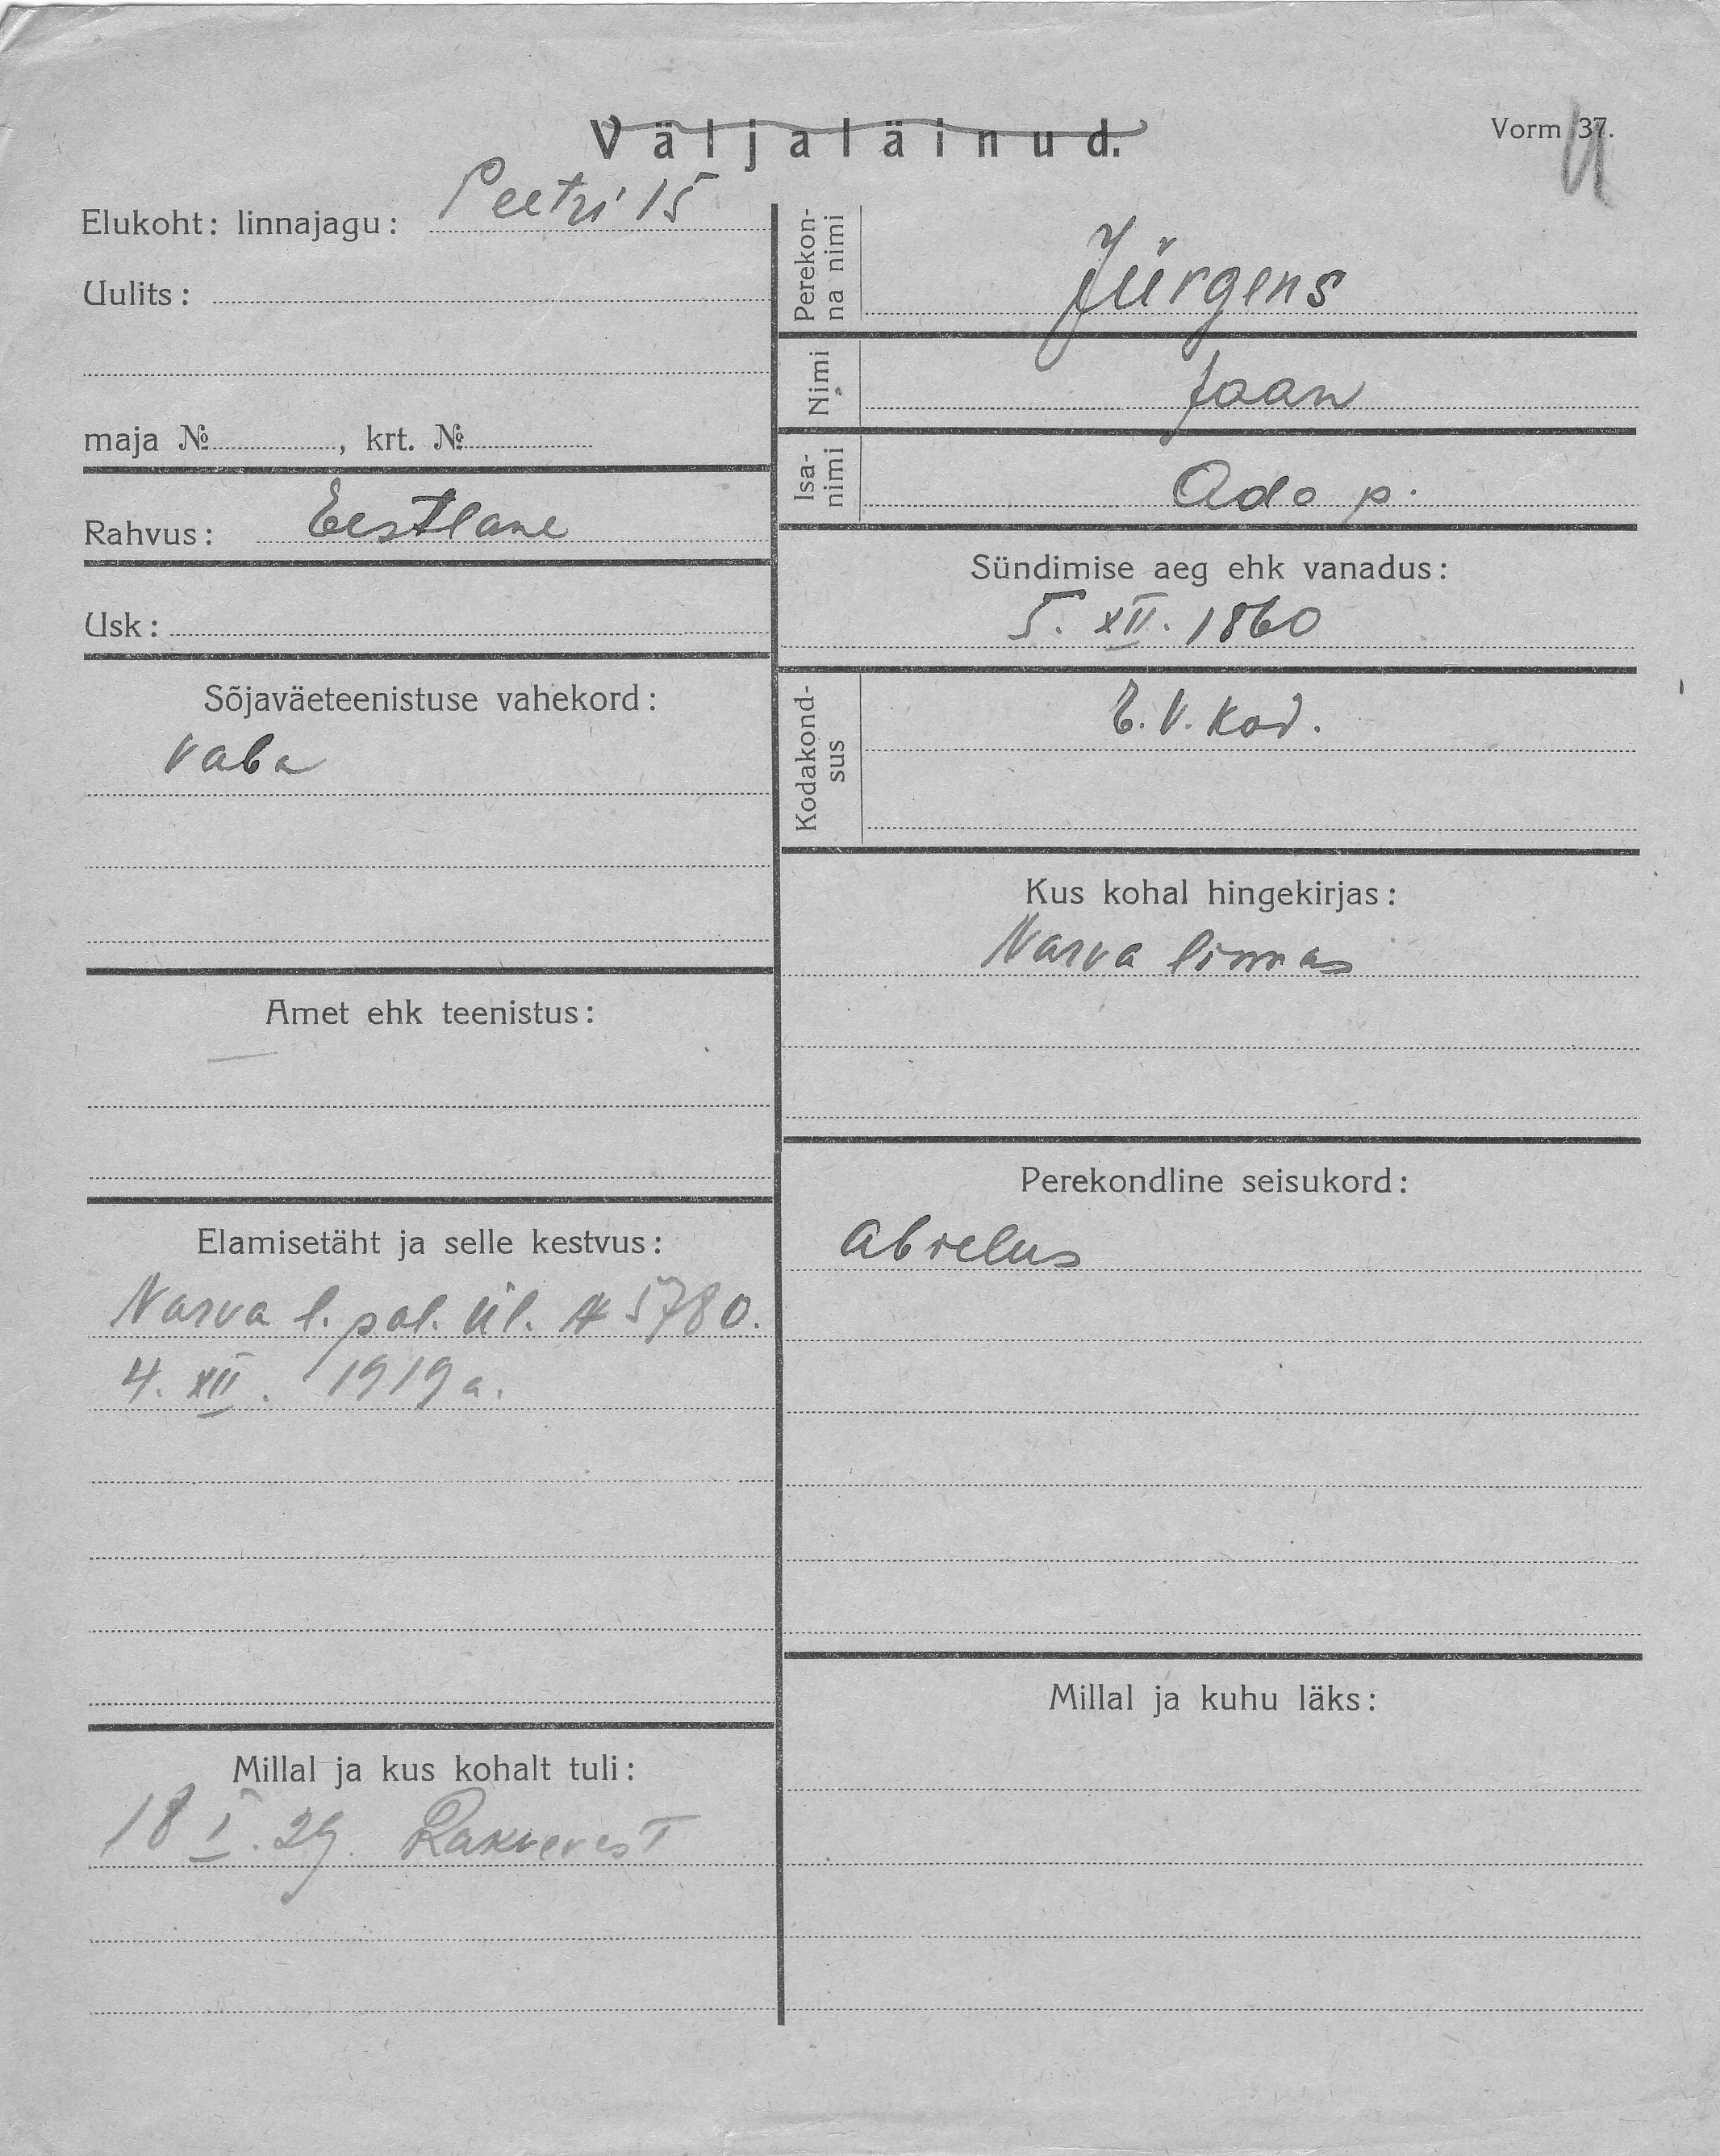 Väljaläinud.
Vorm 37.
Elukoht: linnajagu: Peetri 15
Uulits:
maja №, krt. №
Rahvus: Eestlane
Usk:
Sõjaväeteenistuse vahekord:
Vaba
Amet ehk teenistus:
Elamisetäht ja selle kestvus:
Narva l. pol. ül. № 5780.
4. XII. 1919 a.
Millal ja kus kohalt tuli:
18 I. 29. Rakverest
Perekon-
na nimi
Jürgens
Nimi
Jaan
Isa-
nimi
Ado p.
Sündimise aeg ehk vanadus:
5. XII. 1860
Kodakond-
sus
E.V. Kod.
Kus kohal hingekirjas:
Narva linnas
Perekondline seisukord:
abielus
Millal ja kuhu läks: